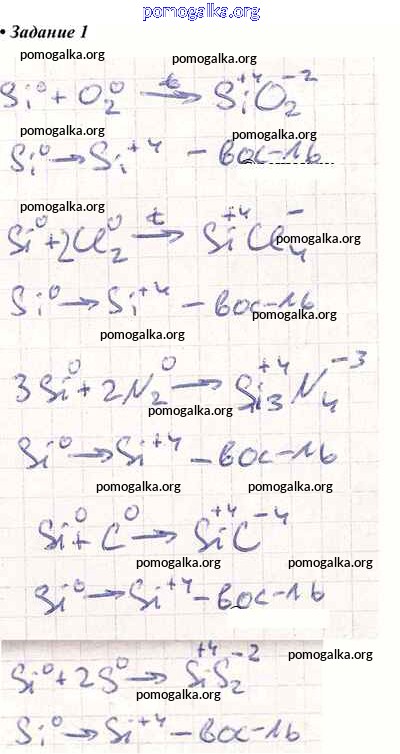 pomogalka.org
• Задание 1
pomogalka.org pomogalka.org
Si⁰ + O₂⁰ —t→ Si⁺⁴O₂⁻²
pomogalka.org pomogalka.org
Si⁰ → Si⁺⁴ – вос-ль
pomogalka.org
Si⁰ + 2Cl₂⁰ —t→ Si⁺⁴Cl₄⁻
pomogalka.org
Si⁰ → Si⁺⁴ – вос-ль
pomogalka.org
pomogalka.org
3Si⁰ + 2N₂⁰ → Si₃⁺⁴N₄⁻³
pomogalka.org
Si⁰ → Si⁺⁴ – вос-ль
pomogalka.org pomogalka.org
Si⁰ + C⁰ → Si⁺⁴C⁻⁴
pomogalka.org pomogalka.org
Si⁰ → Si⁺⁴ – вос-ль
pomogalka.org
Si⁰ + 2S⁰ → Si⁺⁴S₂⁻²
pomogalka.org
Si⁰ → Si⁺⁴ – вос-ль